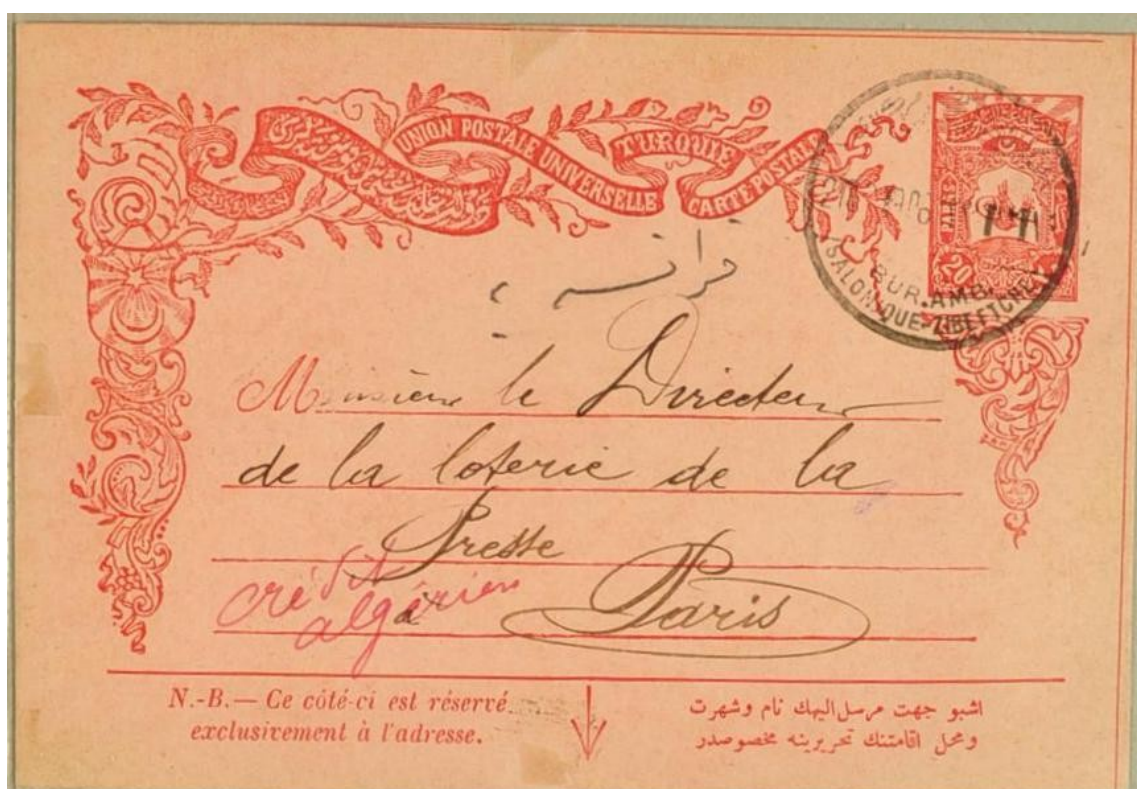 UNION POSTALE UNIVERSELLE
TURQUIE
CARTE POSTALE
PARAS
20
BUR.AMB.
SALONIQUE-ZIBEFTCHE
فرانسه يه
Monsieur le Directeur
de la loterie de la
Presse
crédit
algérien
à Paris
N.-B. — Ce côté-ci est réservé
exclusivement à l'adresse.
اشبو جهت مرسل اليهك نام وشهرت
ومحل اقامتنك تحريرينه مخصوصدر